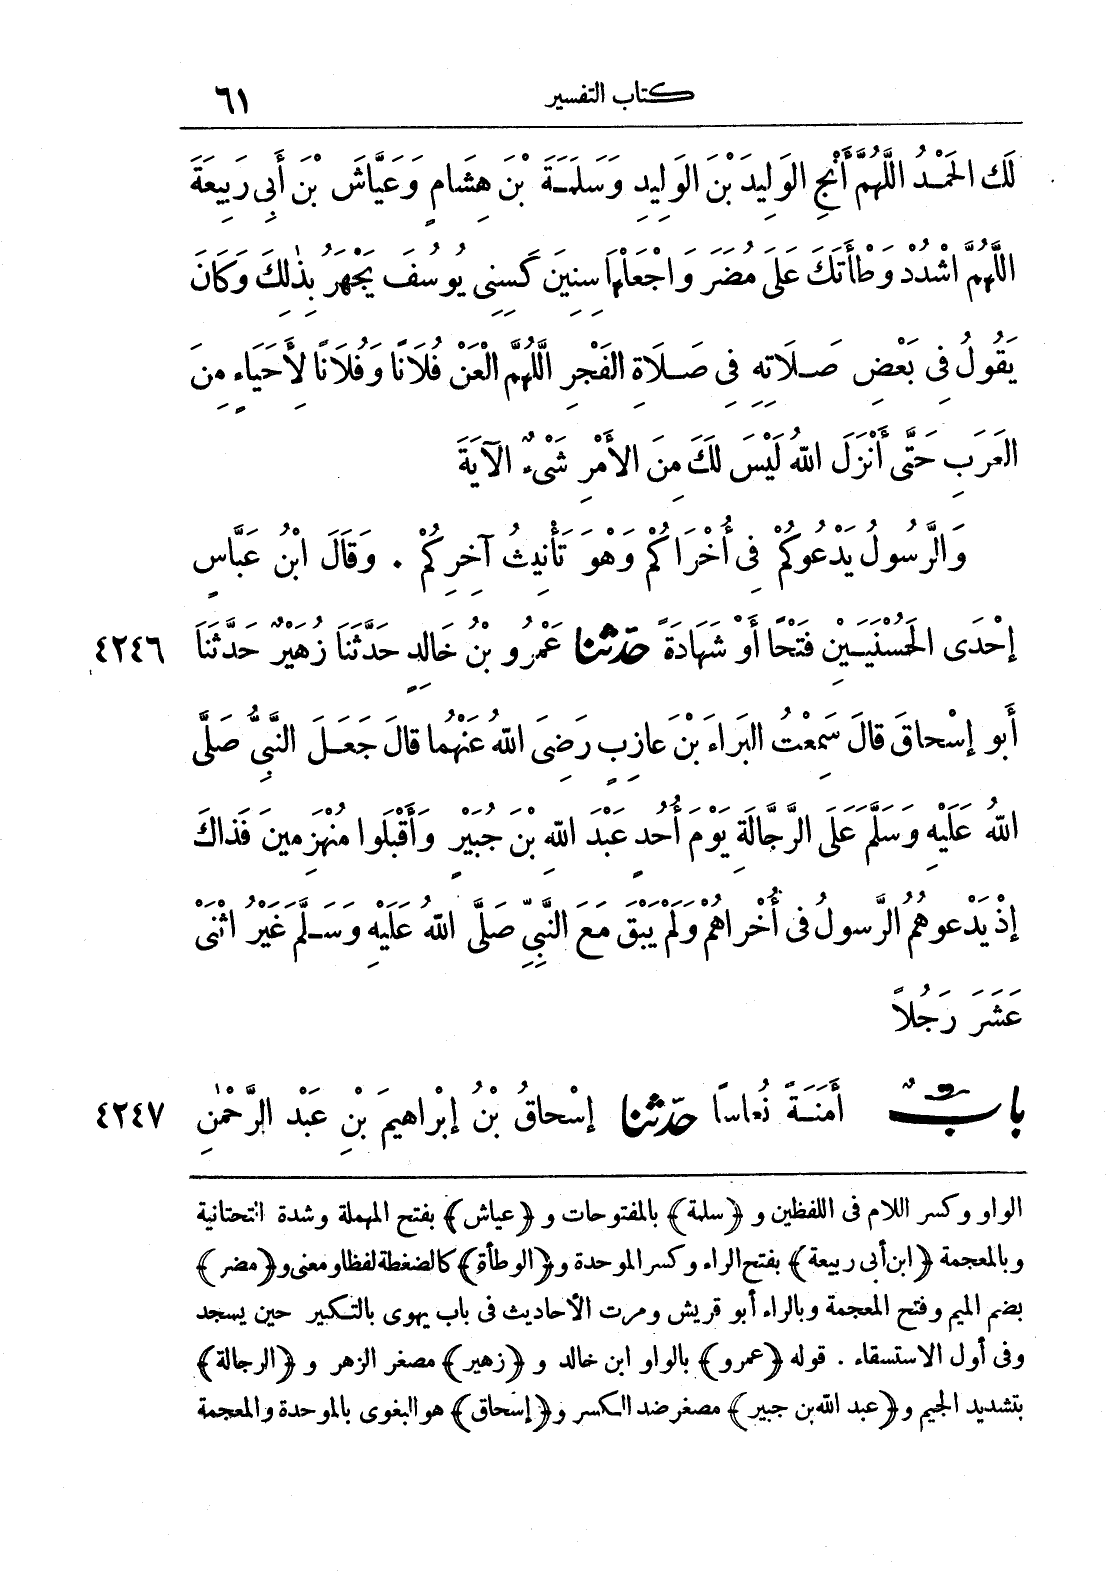 كتاب التفسير ٦١
لَكَ الحَمْدُ اللَّهُمَّ أَنْجِ الوَلِيدَ بْنَ الوَلِيدِ وَسَلَمَةَ بْنَ هِشَامٍ وَعَيَّاشَ بْنَ أَبِى رَبِيعَةَ
اللَّهُمَّ اشْدُدْ وَطْأَتَكَ عَلَى مُضَرَ وَاجْعَلْهَا سِنِينَ كَسِنِى يُوسُفَ يَجْهَرُ بِذٰلِكَ وَكَانَ
يَقُولُ فِى بَعْضِ صَلَاتِهِ فِى صَلَاةِ الفَجْرِ اللَّهُمَّ الْعَنْ فُلَانًا وَفُلَانًا لِأَحَيَاءٍ مِنَ
العَرَبِ حَتَّى أَنْزَلَ اللهُ لَيْسَ لَكَ مِنَ الأَمْرِ شَىْءٌ الآيَةَ
وَالرَّسُولُ يَدْعُوكُمْ فِى أُخْرَاكُمْ وَهْوَ تَأْنِيثُ آخِرِكُمْ . وَقَالَ ابْنُ عَبَّاسٍ
إحْدَى الحُسْنَيَيْنِ فَتْحًا أَوْ شَهَادَةً حدّثنا عَمْرُو بْنُ خَالِدٍ حَدَّثَنَا زُهَيْرٌ حَدَّثَنَا ٤٢٤٦
أَبو إسْحاقَ قالَ سَمِعْتُ البَرَاءَ بْنَ عازِبٍ رَضِىَ اللهُ عَنْهُما قالَ جَعَلَ النَّبِىُّ صَلَّى
اللهُ عَلَيْهِ وَسَلَّمَ عَلَى الرَّجَّالَةِ يَوْمَ أُحُدٍ عَبْدَ اللهِ بْنَ جُبَيْرٍ وَأَقْبَلُوا مُنْهَزِمِينَ فَذاكَ
إذْ يَدْعوهُمُ الرَّسولُ فى أُخْراهُمْ وَلَمْ يَبْقَ مَعَ النَّبِىِّ صَلَّى اللهُ عَلَيْهِ وَسَلَّمَ غَيْرُ اثْنَىْ
عَشَرَ رَجُلاً
بابٌ قوله أَمَنَةً نُعاسًا حدّثنا إسْحاقُ بْنُ إبْراهيمَ بْنِ عَبْد الرَّحْمٰنِ ٤٢٤٧
الواو وكسر اللام فى اللفظين و ﴿سلمة﴾ بالمفتوحات و ﴿عياش﴾ بفتح المهملة وشدة التحتانية
وبالمعجمة ﴿ابن أبى ربيعة﴾ بفتح الراء وكسر الموحدة و ﴿الوطأة﴾ كالضغطة لفظا ومعنى و ﴿مضر﴾
بضم الميم وفتح المعجمة وبالراء أبو قريش ومرت الأحاديث فى باب يهوى بالتكبير حين يسجد
وفى أول الاستسقاء . قوله ﴿عمرو﴾ بالواو ابن خالد و ﴿زهير﴾ مصغر الزهر و ﴿الرجالة﴾
بتشديد الجيم و ﴿عبد الله بن جبير﴾ مصغر ضد الكسر و ﴿إسحاق﴾ هو البغوى بالموحدة والمعجمة